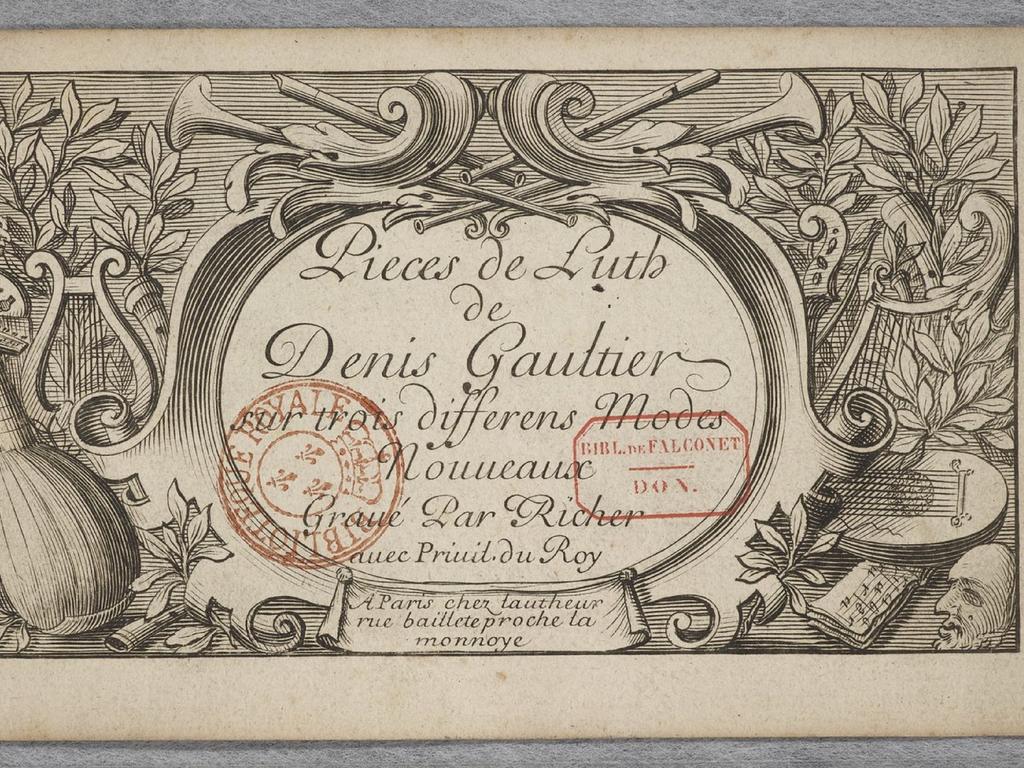 Pieces de Luth
de
Denis Gaultier
sur trois differens Modes
Nouueaux
Graué Par Richer
auec Priuil. du Roy
A Paris chez lautheur
rue baillete proche la
monnoye
BIBLIOTHEQUE ROYALE
BIBL. DE FALCONET
DON.